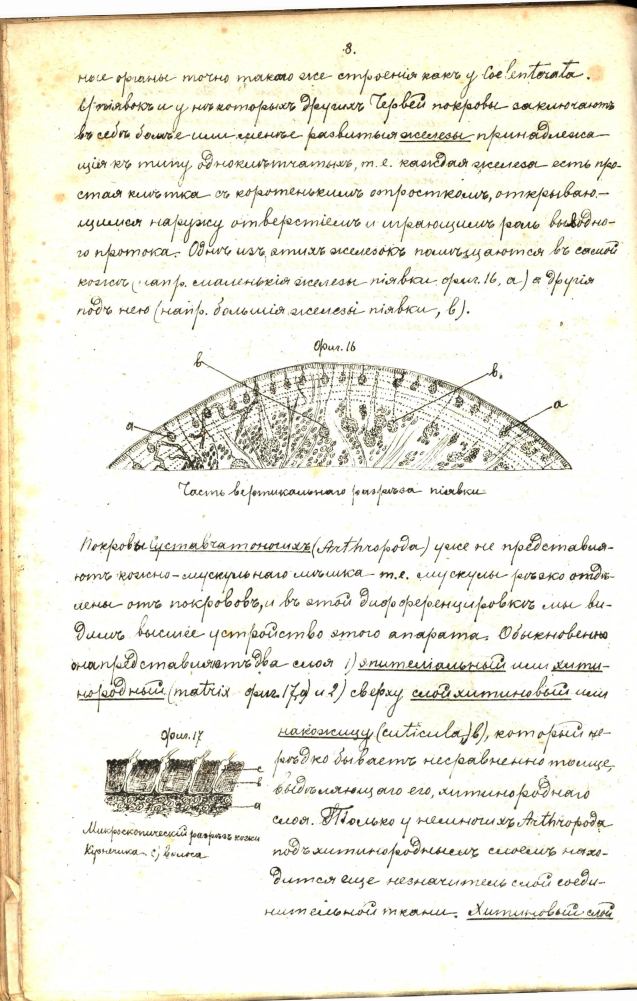 8.
ные органы точно такого же строенія какъ у Coelenterata.
У піявокъ и у нѣкоторыхъ другихъ Червей покровы заключаютъ
въ себѣ болѣе или менѣе развитыя железы принадлежа-
щія къ типу одноклѣтчатыхъ, т.е. каждая железа есть про-
стая клѣтка съ коротенькимъ отросткомъ, открываю-
щимся наружу отверстіемъ и играющимъ роль выводно-
го протока. Однѣ изъ этихъ железокъ помѣщаются въ самой
кожѣ (напр. маленькія железы піявки фиг. 16, а) а другія
подъ нею (напр. большія железы піявки, в).
Фиг. 16
в в.
а а
Часть вертикальнаго разрѣза піявки
Покровы Суставчатоногихъ (Arthropoda) уже не представля-
ютъ кожно-мускульнаго мѣшка т.е. мускулы рѣзко отдѣ-
лены отъ покрововъ, и въ этой дифференцировкѣ мы ви-
димъ высшее устройство этого апарата. Обыкновенно
она представляетъ два слоя 1) эпителіальный или хити-
нородный (matrix фиг. 17, а) и 2) сверху слой хитиновый или
накожицу (cuticula, в), который не-
рѣдко бываетъ несравненно толще,
выдѣляющаго его, хитинороднаго
слоя. Только у немногихъ Arthropoda
подъ хитинороднымъ слоемъ нахо-
дится еще незначитель слой соеди-
нительной ткани. Хитиновый слой
Фиг. 17
с
в
а
Микроскопическій разрѣзъ кожи
Кузнечика с, волоса